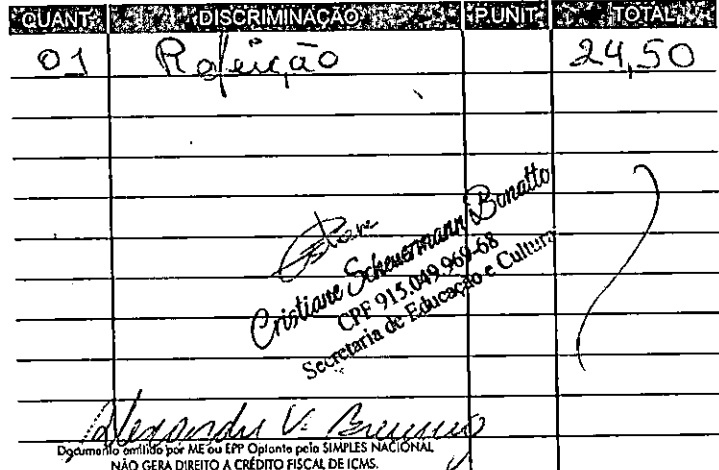 QUANT. DISCRIMINAÇÃO P.UNIT. TOTAL
01 Refeição 24,50
Cristiane Scheuermann Bonatto
CPF 915.049.969-68
Secretaria de Educação e Cultura
Alexandre V.
Documento emitido por ME ou EPP Optante pelo SIMPLES NACIONAL
NÃO GERA DIREITO A CRÉDITO FISCAL DE ICMS.